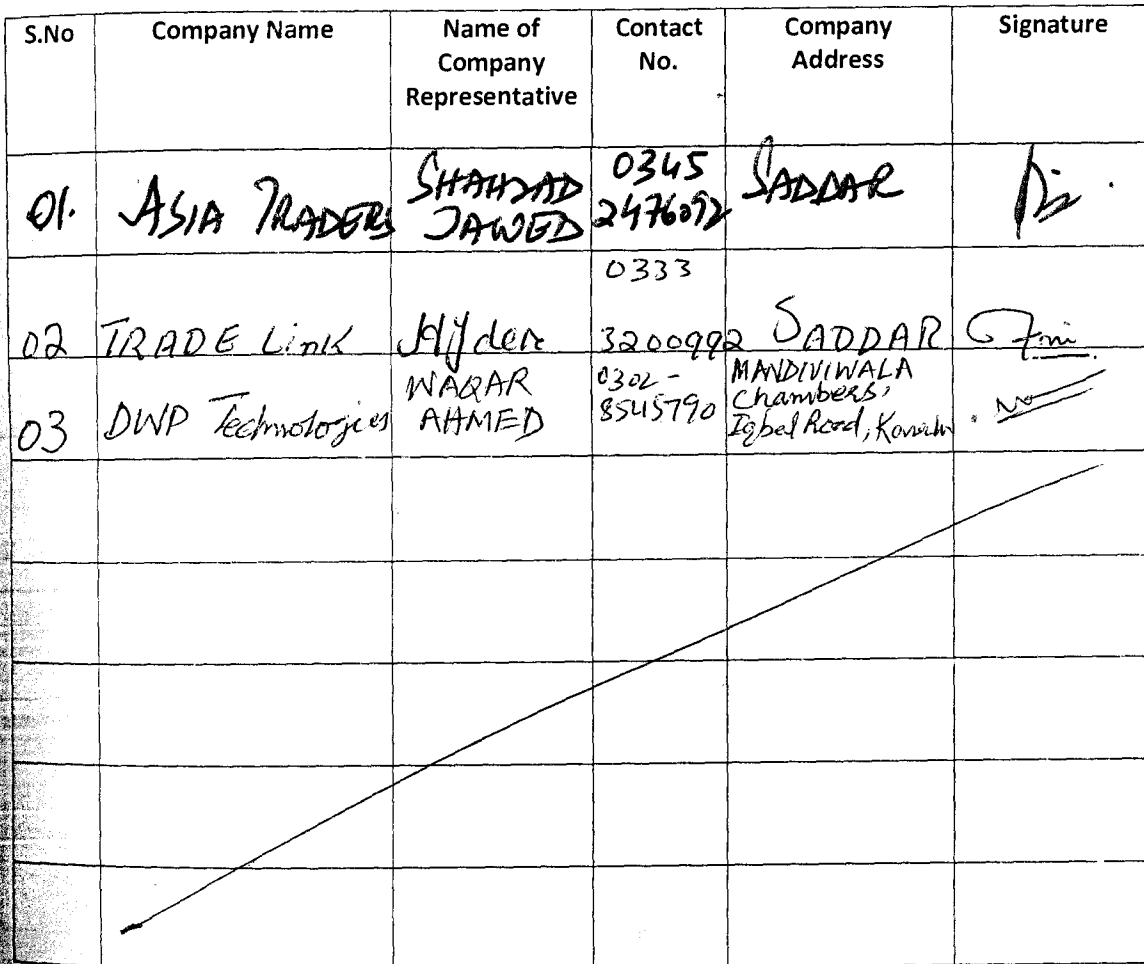 S.No Company Name Name of Company Representative Contact No. Company Address Signature
01. ASIA TRADERS SHAHZAD JAWED 0345 2476092 SADDAR
02 TRADE Link 0333 3200992 SADDAR
03 DWP Technologies WAQAR AHMED 0302-8545790 MANDIVIWALA Chambers, Iqbal Road, Karachi